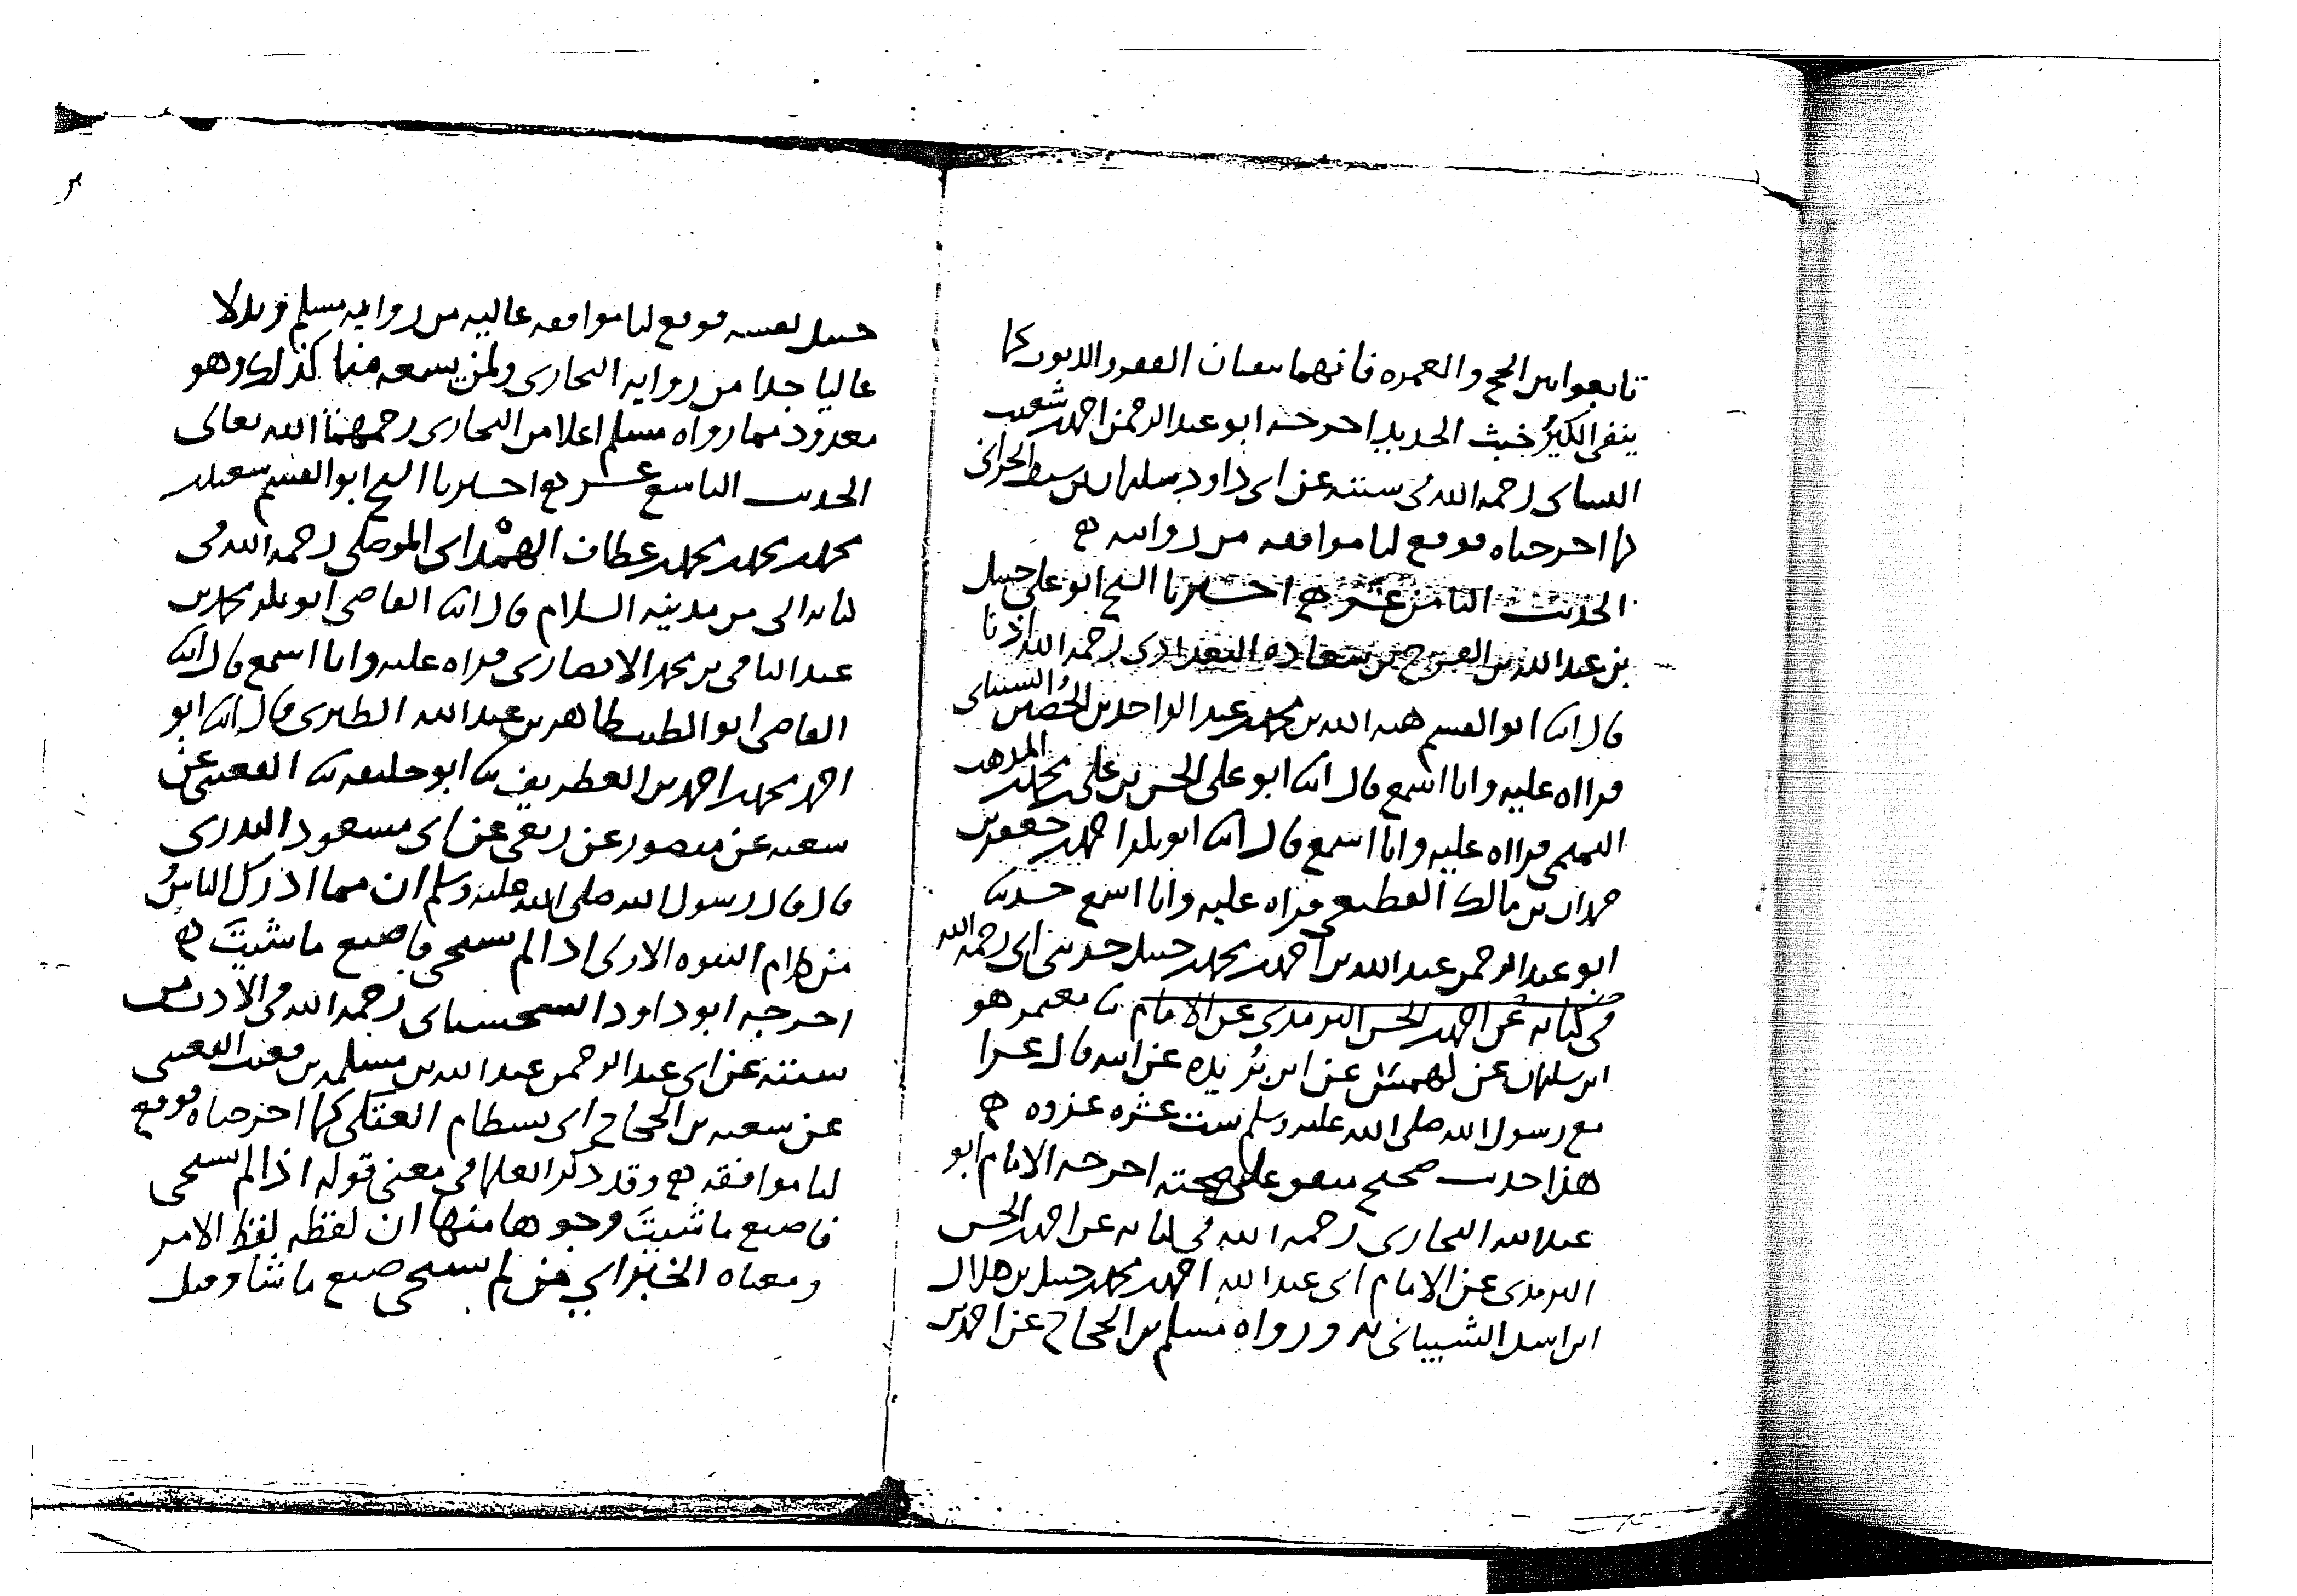 تابعوا بين الحج والعمره فانهما ينفيان الفقر والذنوب كما
ينفي الكيرُ خبث الحديد اخرجه ابو عبد الرحمن احمد بن شعيب
النسائي رحمه الله في سننه عن ابي داود سليمان بن سيف الحراني
كما اخرجناه فوقع لنا موافقه من روايته
الحديث الثامن عشر اخبرنا الشيخ ابو علي حنبل
بن عبد الله بن الفرج بن سعاده البغدادي رحمه الله اذنا
قال انبا ابو القسم هبه الله بن محمد بن عبد الواحد بن الحُصَين الشيباني
قراه عليه وانا اسمع قال انبا ابو علي الحسن بن علي بن محمد المذهب
التميمي قراه عليه وانا اسمع قال انبا ابو بكر احمد بن جعفر بن
حمدان بن مالك القطيعي قراه عليه وانا اسمع حدثنا
ابو عبد الرحمن عبد الله بن احمد بن محمد بن حنبل حدثني ابي رحمه الله
في كتابه عن احمد بن الحسن الترمذي عن الامام ثنا معتمر هو
ابن سليمان عن كهمس عن ابن بُريده عن ابيه قال غزا
مع رسول الله صلى الله عليه وسلم ست عشره غزوه
هذا حديث صحيح متفق على صحته اخرجه الامام ابو
عبد الله البخاري رحمه الله في كتابه عن احمد بن الحسن
الترمذي عن الامام ابي عبد الله احمد بن محمد بن حنبل بن هلال
ابن اسد الشيباني به ورواه مسلم بن الحجاج عن احمد بن
حنبل نفسه فوقع لنا موافقه عاليه من روايه مسلم وبدلا
عاليا جدا من روايه البخاري ولمن يسمعه منا كذلك وهو
معدود فيما رواه مسلم اعلا من البخاري رحمهما الله تعالى
الحديث التاسع عشر اخبرنا الشيخ ابو القسم سعيد بن
محمد بن محمد بن محمد بن عطاف الهمْداني الموصلي رحمه الله في
كتابه الي من مدينه السلام قال انبا القاضي ابو بكر محمد بن
عبد الباقي بن محمد الانصاري قراه عليه وانا اسمع قال انبا
القاضي ابو الطيب طاهر بن عبد الله الطبري قال انبا ابو
احمد محمد بن احمد بن الغطريف ثنا ابو خليفه ثنا القعنبي عن
شعبه عن منصور عن ربعي عن ابي مسعود البدري
قال قال رسول الله صلى الله عليه وسلم ان مما ادرك الناسُ
من كلام النبوه الاولى اذا لم تستحي فاصنع ما شيتَ
اخرجه ابو داود السجستاني رحمه الله في الادب من
سننه عن ابي عبد الرحمن عبد الله بن مسلمه بن قعنب القعنبي
عن شعبه بن الحجاج ابي بسطام العتكي كما اخرجناه فوقع
لنا موافقه وقد ذكر العلما في معنى قوله اذا لم تستحي
فاصنع ما شيتَ وجوها منها ان لفظه لفظ الامر
ومعناه الخبر اي من لم يستحي صنع ما شا وقيل